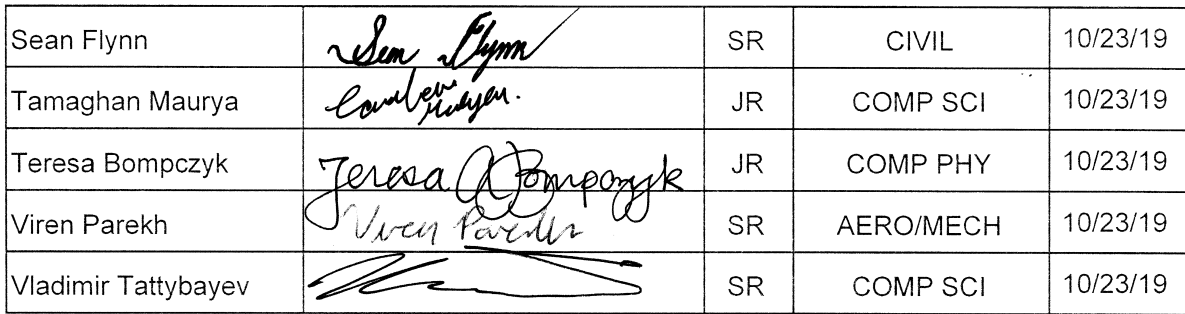 Sean Flynn Sean Flynn SR CIVIL 10/23/19
Tamaghan Maurya JR COMP SCI 10/23/19
Teresa Bompczyk Teresa A Bompczyk JR COMP PHY 10/23/19
Viren Parekh Viren Parekh SR AERO/MECH 10/23/19
Vladimir Tattybayev SR COMP SCI 10/23/19